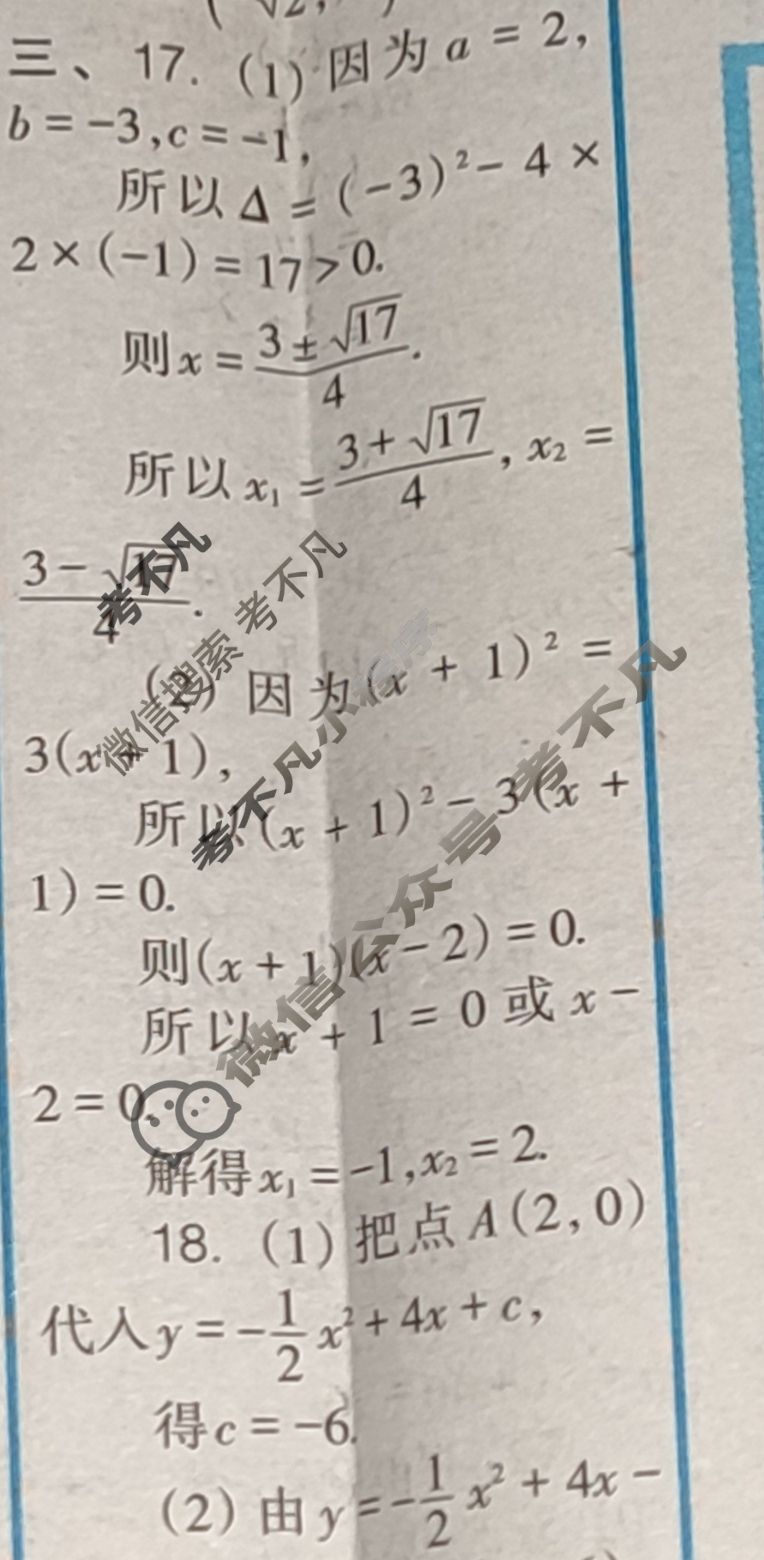 三、17. (1) 因为 a = 2,
b = -3, c = -1,
所以 Δ = (-3)² - 4 ×
2 × (-1) = 17 > 0.
则 x = \frac{3 ± √17}{4}.
所以 x₁ = \frac{3 + √17}{4}, x₂ =
\frac{3 - √17}{4}.
(2) 因为 (x + 1)² =
3(x + 1),
所以 (x + 1)² - 3(x +
1) = 0.
则 (x + 1)(x - 2) = 0.
所以 x + 1 = 0 或 x -
2 = 0.
解得 x₁ = -1, x₂ = 2.
18. (1) 把点 A(2, 0)
代入 y = -\frac{1}{2}x² + 4x + c,
得 c = -6.
(2) 由 y = -\frac{1}{2}x² + 4x -
考不凡
微信搜索 考不凡
考不凡小程序
微信公众号 考不凡